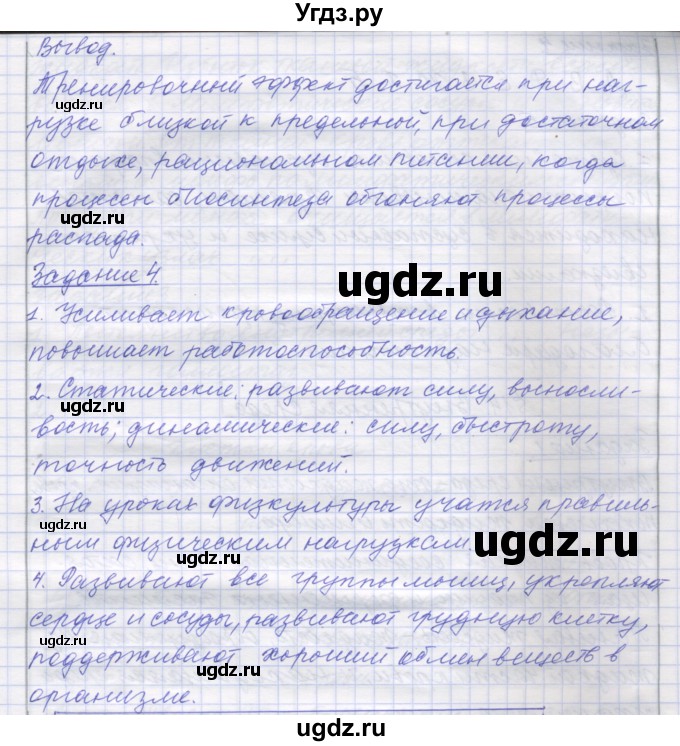 Угдз.ру
Вывод.
Тренировочный эффект достигается при наг-
рузке близкой к предельной, при достаточном
отдыхе, рациональном питании, когда
процессы биосинтеза обгоняют процессы
распада.
Задание 4.
1. Усиливает кровообращение и дыхание,
повышает работоспособность.
2. Статические: развивают силу, выносли-
вость; динамические: силу, быстроту,
точность движений.
3. На уроках физкультуры учатся правиль-
ным физическим нагрузкам
4. Развивают все группы мышц, укрепляют
сердце и сосуды, развивают грудную клетку,
поддерживают хороший обмен веществ в
организме.
ugdz.ru
ugdz.ru
ugdz.ru
ugdz.ru
ugdz.ru
ugdz.ru
ugdz.ru
ugdz.ru
ugdz.ru
ugdz.ru
ugdz.ru